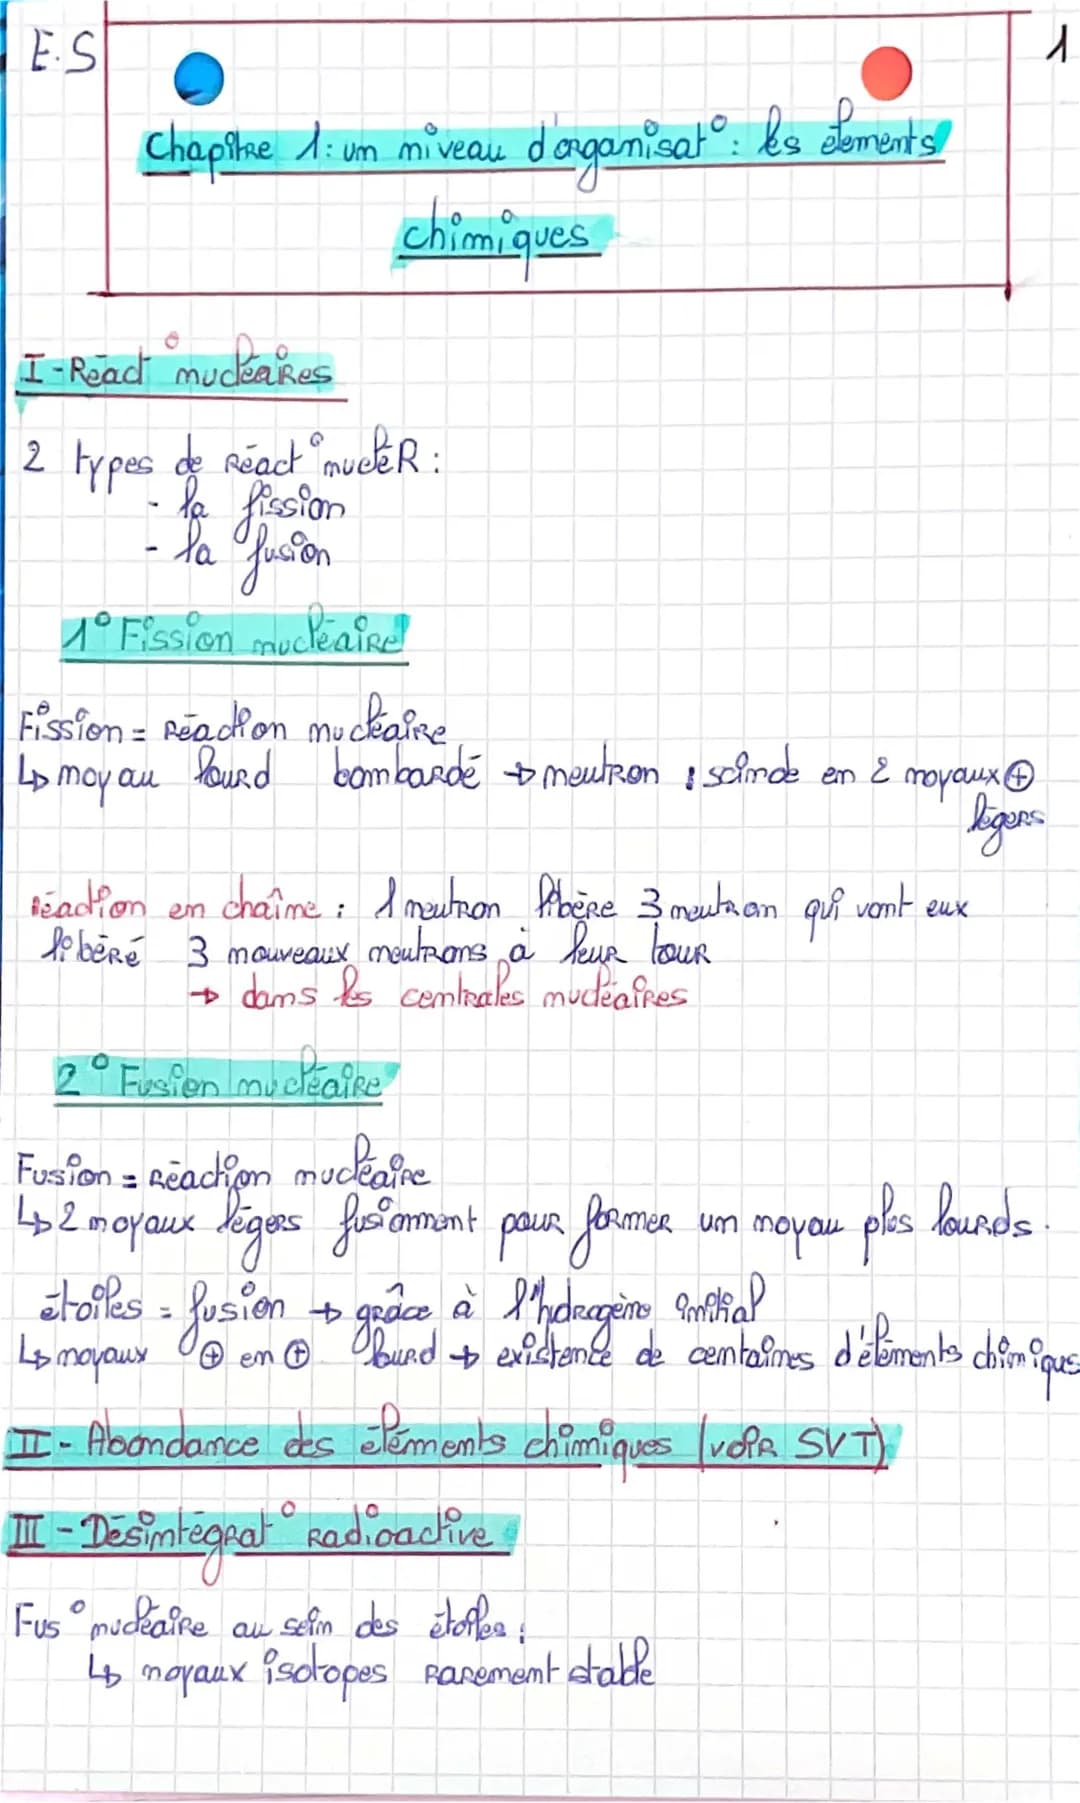 E.S
1
Chapitre 1: un niveau d'organisat°: les élements
chimiques
I - Réact° nucléaires
2 types de réact° nucléR :
- la fission
- la fusion
1° Fission nucléaire
Fission = réaction nucléaire
↳ noyau lourd bombardé → neutron : scinde en 2 noyaux ⊕
légers
réaction en chaîne : 1 neutron libère 3 neutron qui vont eux
libéré 3 nouveaux neutrons à leur tour
→ dans les centrales nucléaires
2° Fusion nucléaire
Fusion = réaction nucléaire
↳ 2 noyaux légers fusionnent pour former un noyau plus lourds.
étoiles = fusion → grâce à l'hydrogène initial
↳ noyaux ⊕ en ⊕ lourd → existence de centaines d'éléments chimiques
II - Abondance des éléments chimiques (voir SVT)
III - Désintégrat° radioactive
Fus° nucléaire au sein des étoiles :
↳ noyaux isotopes rarement stable